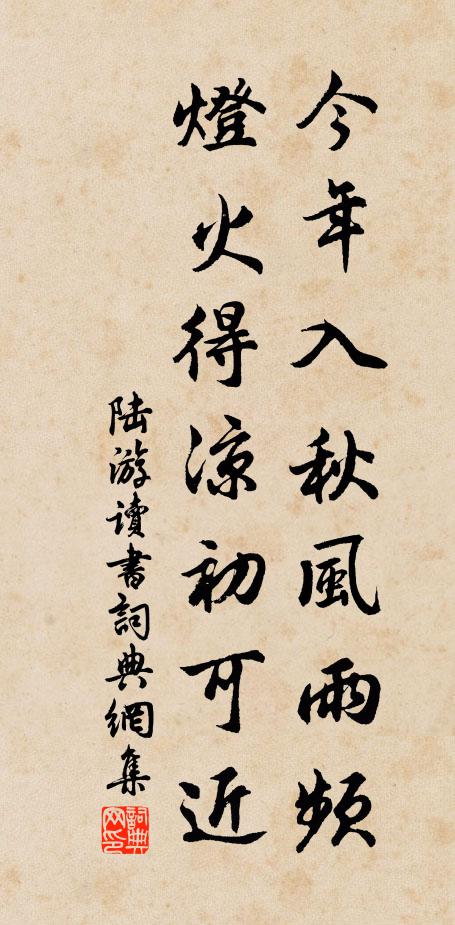 今年入秋風雨頻
燈火得涼初可近
陸游讀書詞典網集
詞典網印